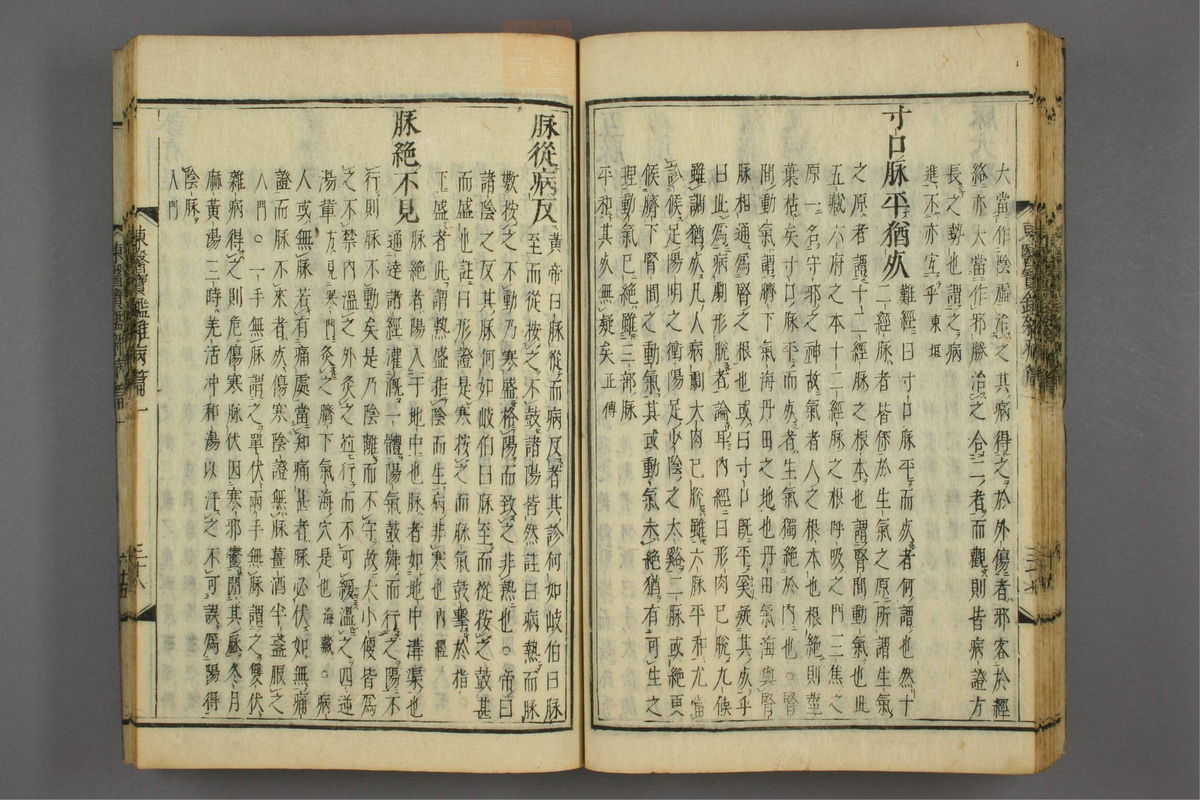 大當作陰虛治之其病得之於外傷者邪客於經
絡亦大當作邪勝治之合二者而觀則皆病證方
長之勢也謂之病
進不亦宜乎東垣
寸口脉平猶死
難經曰寸口脉平而死者何謂也然十
二經脉者皆係於生氣之原所謂生氣
之原者謂十二經脉之根本也謂腎間動氣也此
五藏六府之本十二經脉之根呼吸之門三焦之
原一名守邪之神故氣者人之根本也根絶則莖
葉枯矣寸口脉平而死者生氣獨絶於內也○腎
間動氣謂臍下氣海丹田之地也丹田氣海與腎
脉相通爲腎之根也或曰寸口旣平奚疑其死乎
曰此爲病劇形脫者論耳內經曰形肉已脫九候
雖調猶死凡人病劇大肉已脫雖六脉平和尤當
診候足陽明之衝陽足少陰之太谿二脉或絶更
候臍下腎間之動氣其或動氣未絶猶有可生之
理動氣已絶雖三部脉
平和其死無疑矣正傳
脉從病反
黃帝曰脉從而病反者其診何如岐伯曰脉
至而從按之不鼓諸陽皆然註曰病熱而脉
數按之不動乃寒盛格陽而致之非熱也○帝曰
諸陰之反其脉何如岐伯曰脉至而從按之鼓甚
而盛也註曰形證是寒按之而脉氣鼓擊於指
下盛者此謂熱盛拒陰而生病非寒也內經
脉絶不見
脉絶者陽入于地中也脉者如地中溝渠也
通達諸經灌漑一體陽氣鼓舞而行之陽不
行則脉不動矣是乃陰離而不守故大小便皆爲
之不禁內溫之外灸之延行而不可緩溫之四逆
湯輩方見寒門灸之臍下氣海穴是也海藏○病
人或無脉若有痛處當知痛甚者脉必伏如無痛
證而脉不來者死傷寒陰證無脉薑酒半盞服之
入門○一手無脉謂之單伏兩手無脉謂之雙伏
雜病得之則危傷寒脉伏因寒邪鬱閉其脉冬月
麻黃湯三時羌活冲和湯以汗之不可誤爲陽得
陰脉
入門
東醫寶鑑雜病篇一
三十八